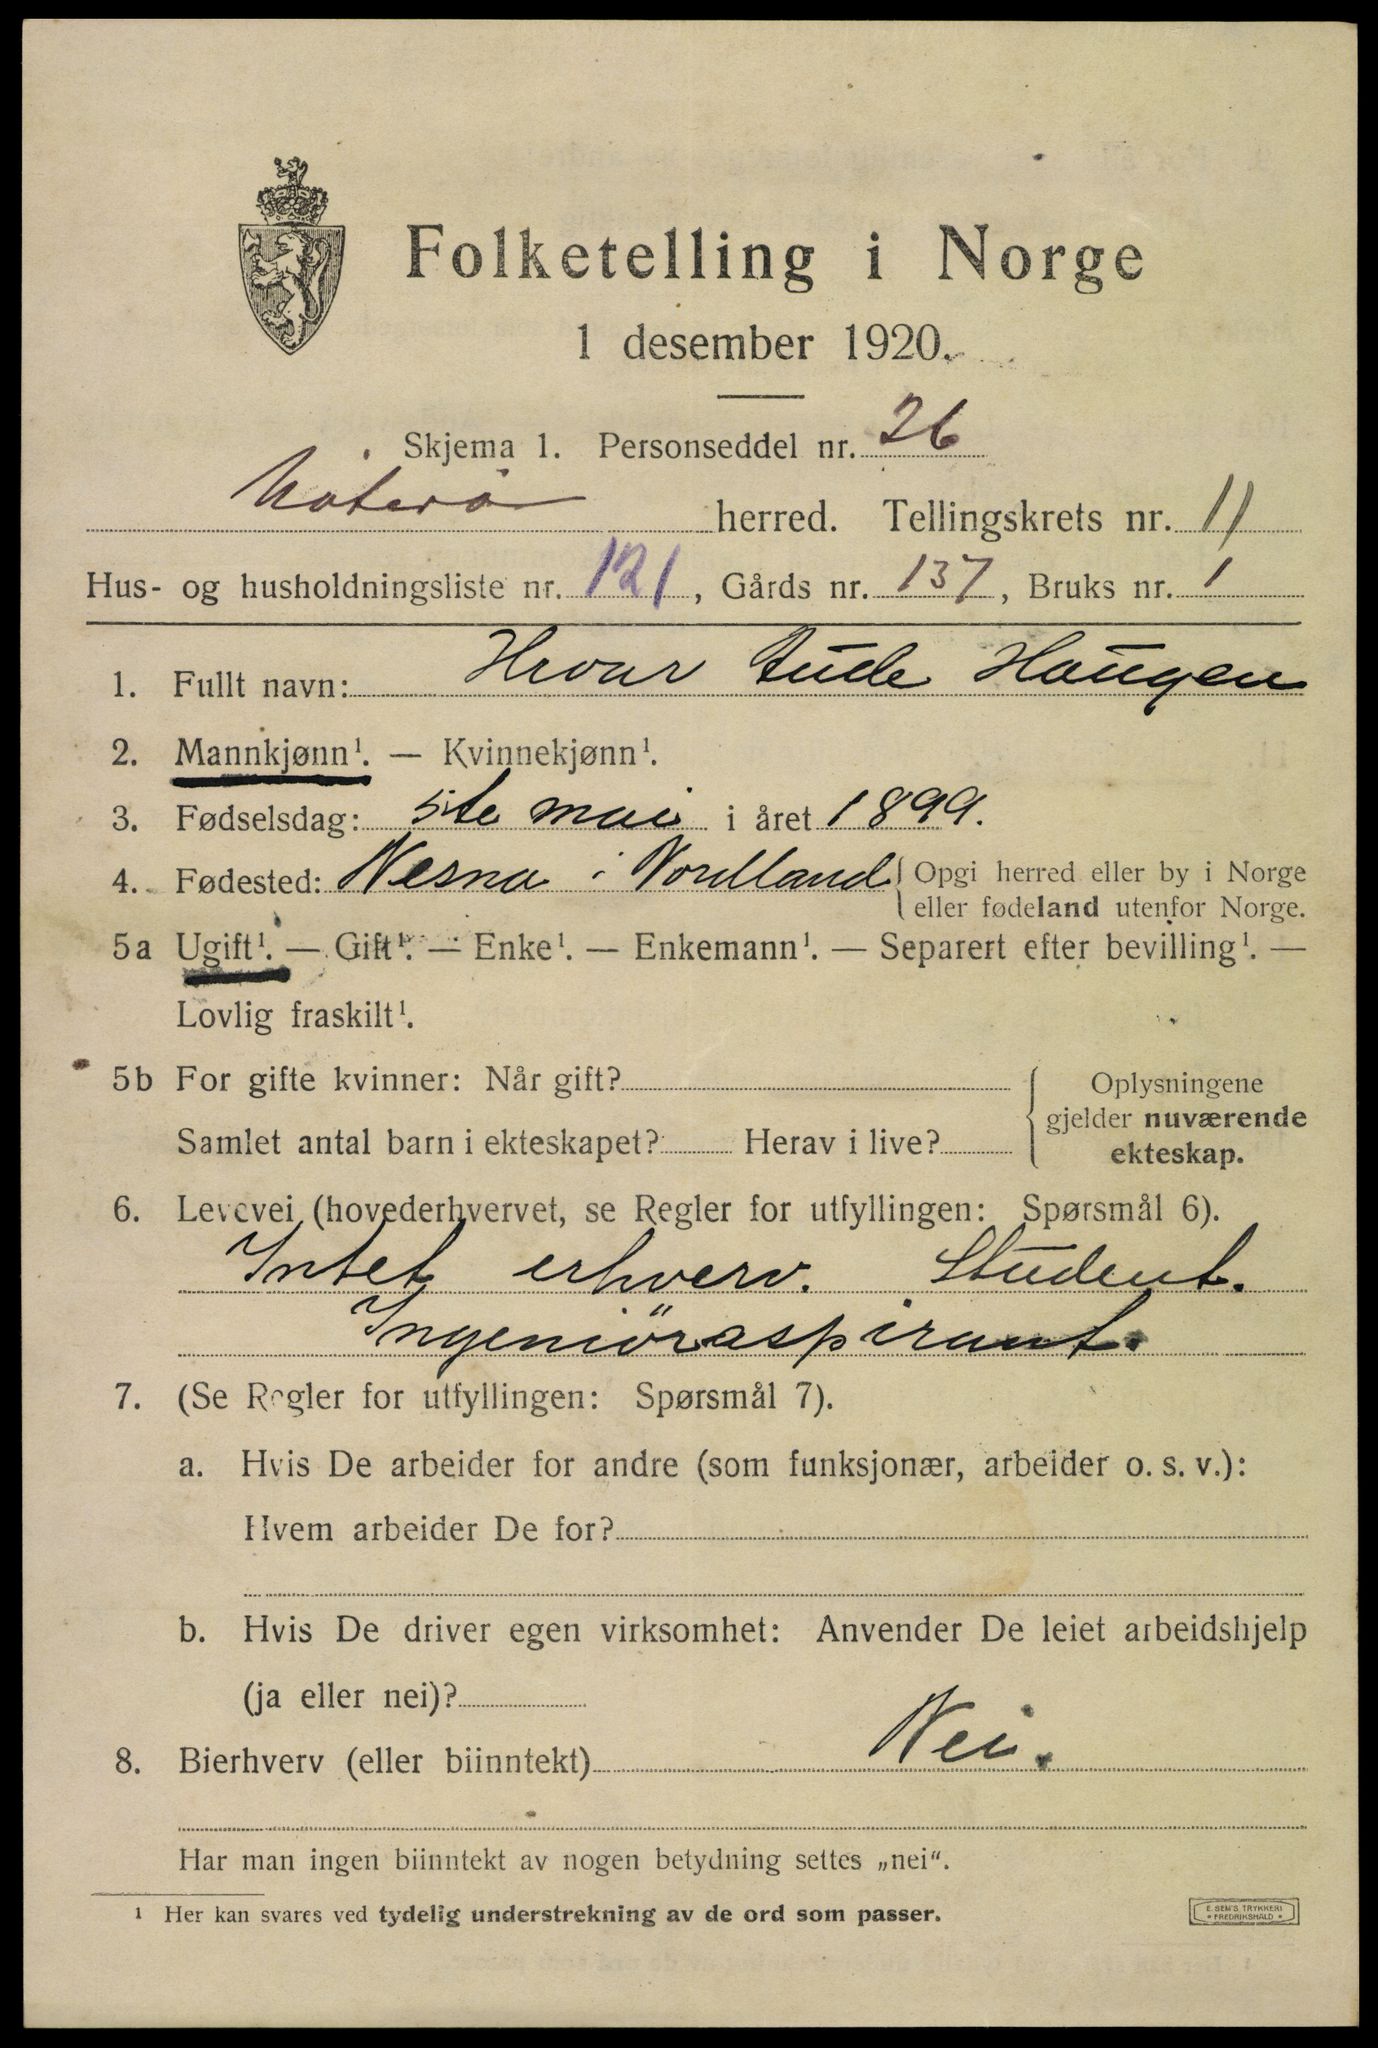 Folketelling i Norge
1 desember 1920.
Skjema 1. Personseddel nr. 26
Nøterø herred. Tellingskrets nr. 11
Hus- og husholdningsliste nr. 121, Gårds nr. 137, Bruks nr. 1
1. Fullt navn: Hroar Aude Haugen
2. Mannkjønn¹. — Kvinnekjønn¹.
3. Fødselsdag: 5te mai i året 1899.
4. Fødested: Nesna i Nordland { Opgi herred eller by i Norge
eller fødeland utenfor Norge.
5a Ugift¹. — Gift¹. — Enke¹. — Enkemann¹. — Separert efter bevilling¹. —
Lovlig fraskilt¹.
5b For gifte kvinner: Når gift? { Oplysningene
gjelder nuværende
Samlet antal barn i ekteskapet? Herav i live?
ekteskap.
6. Levevei (hovederhvervet, se Regler for utfyllingen: Spørsmål 6).
Intet erhverv. Student.
Ingeniöraspirant.
7. (Se Regler for utfyllingen: Spørsmål 7).
a. Hvis De arbeider for andre (som funksjonær, arbeider o. s. v.):
Hvem arbeider De for?
b. Hvis De driver egen virksomhet: Anvender De leiet arbeidshjelp
(ja eller nei)?
8. Bierhverv (eller biinntekt) Nei.
Har man ingen biinntekt av nogen betydning settes „nei“.
¹ Her kan svares ved tydelig understrekning av de ord som passer.
E. SEM'S TRYKKERI
• FREDRIKSHALD •